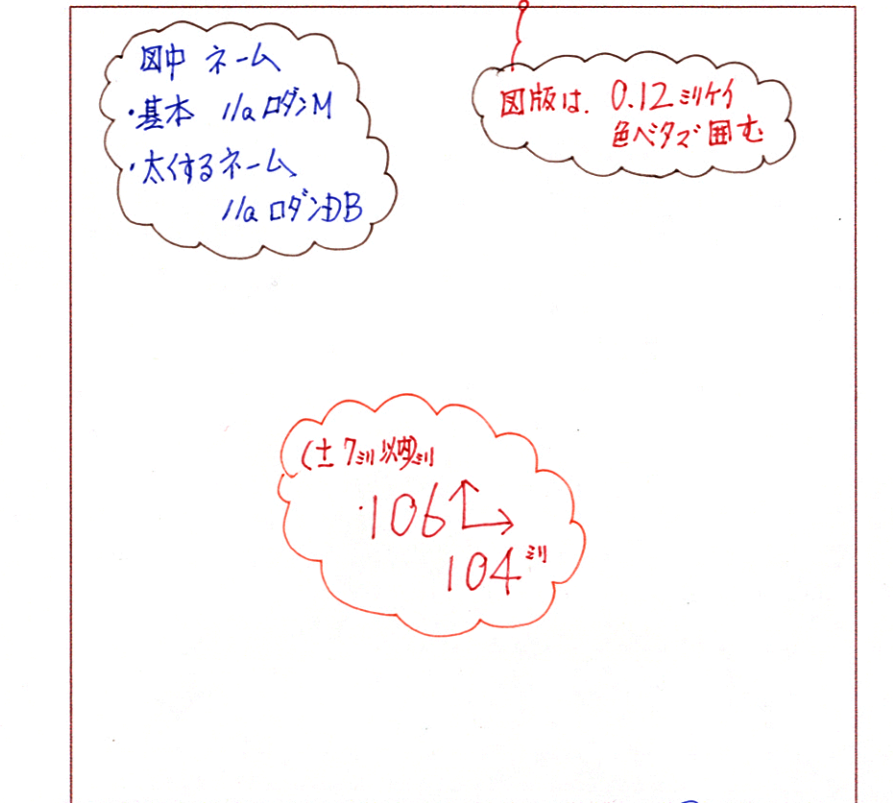 図中 ネーム
・基本 11a ロダンM
・太くするネーム
11a ロダンDB
図版は、0.12ミリケイ
色ベタで囲む
(±7ミリ以内)
106
104ミリ